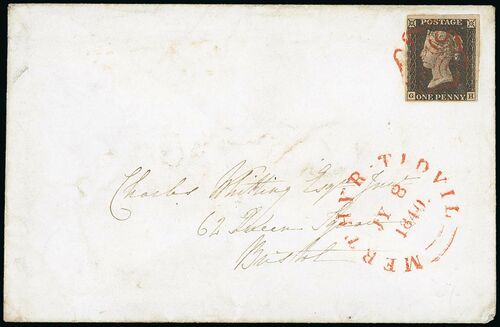 POSTAGE
G H
ONE PENNY
MERTHYR TIDVIL
MY 8
1840
Charles Whitting Esq
62 Queen Square
Bristol